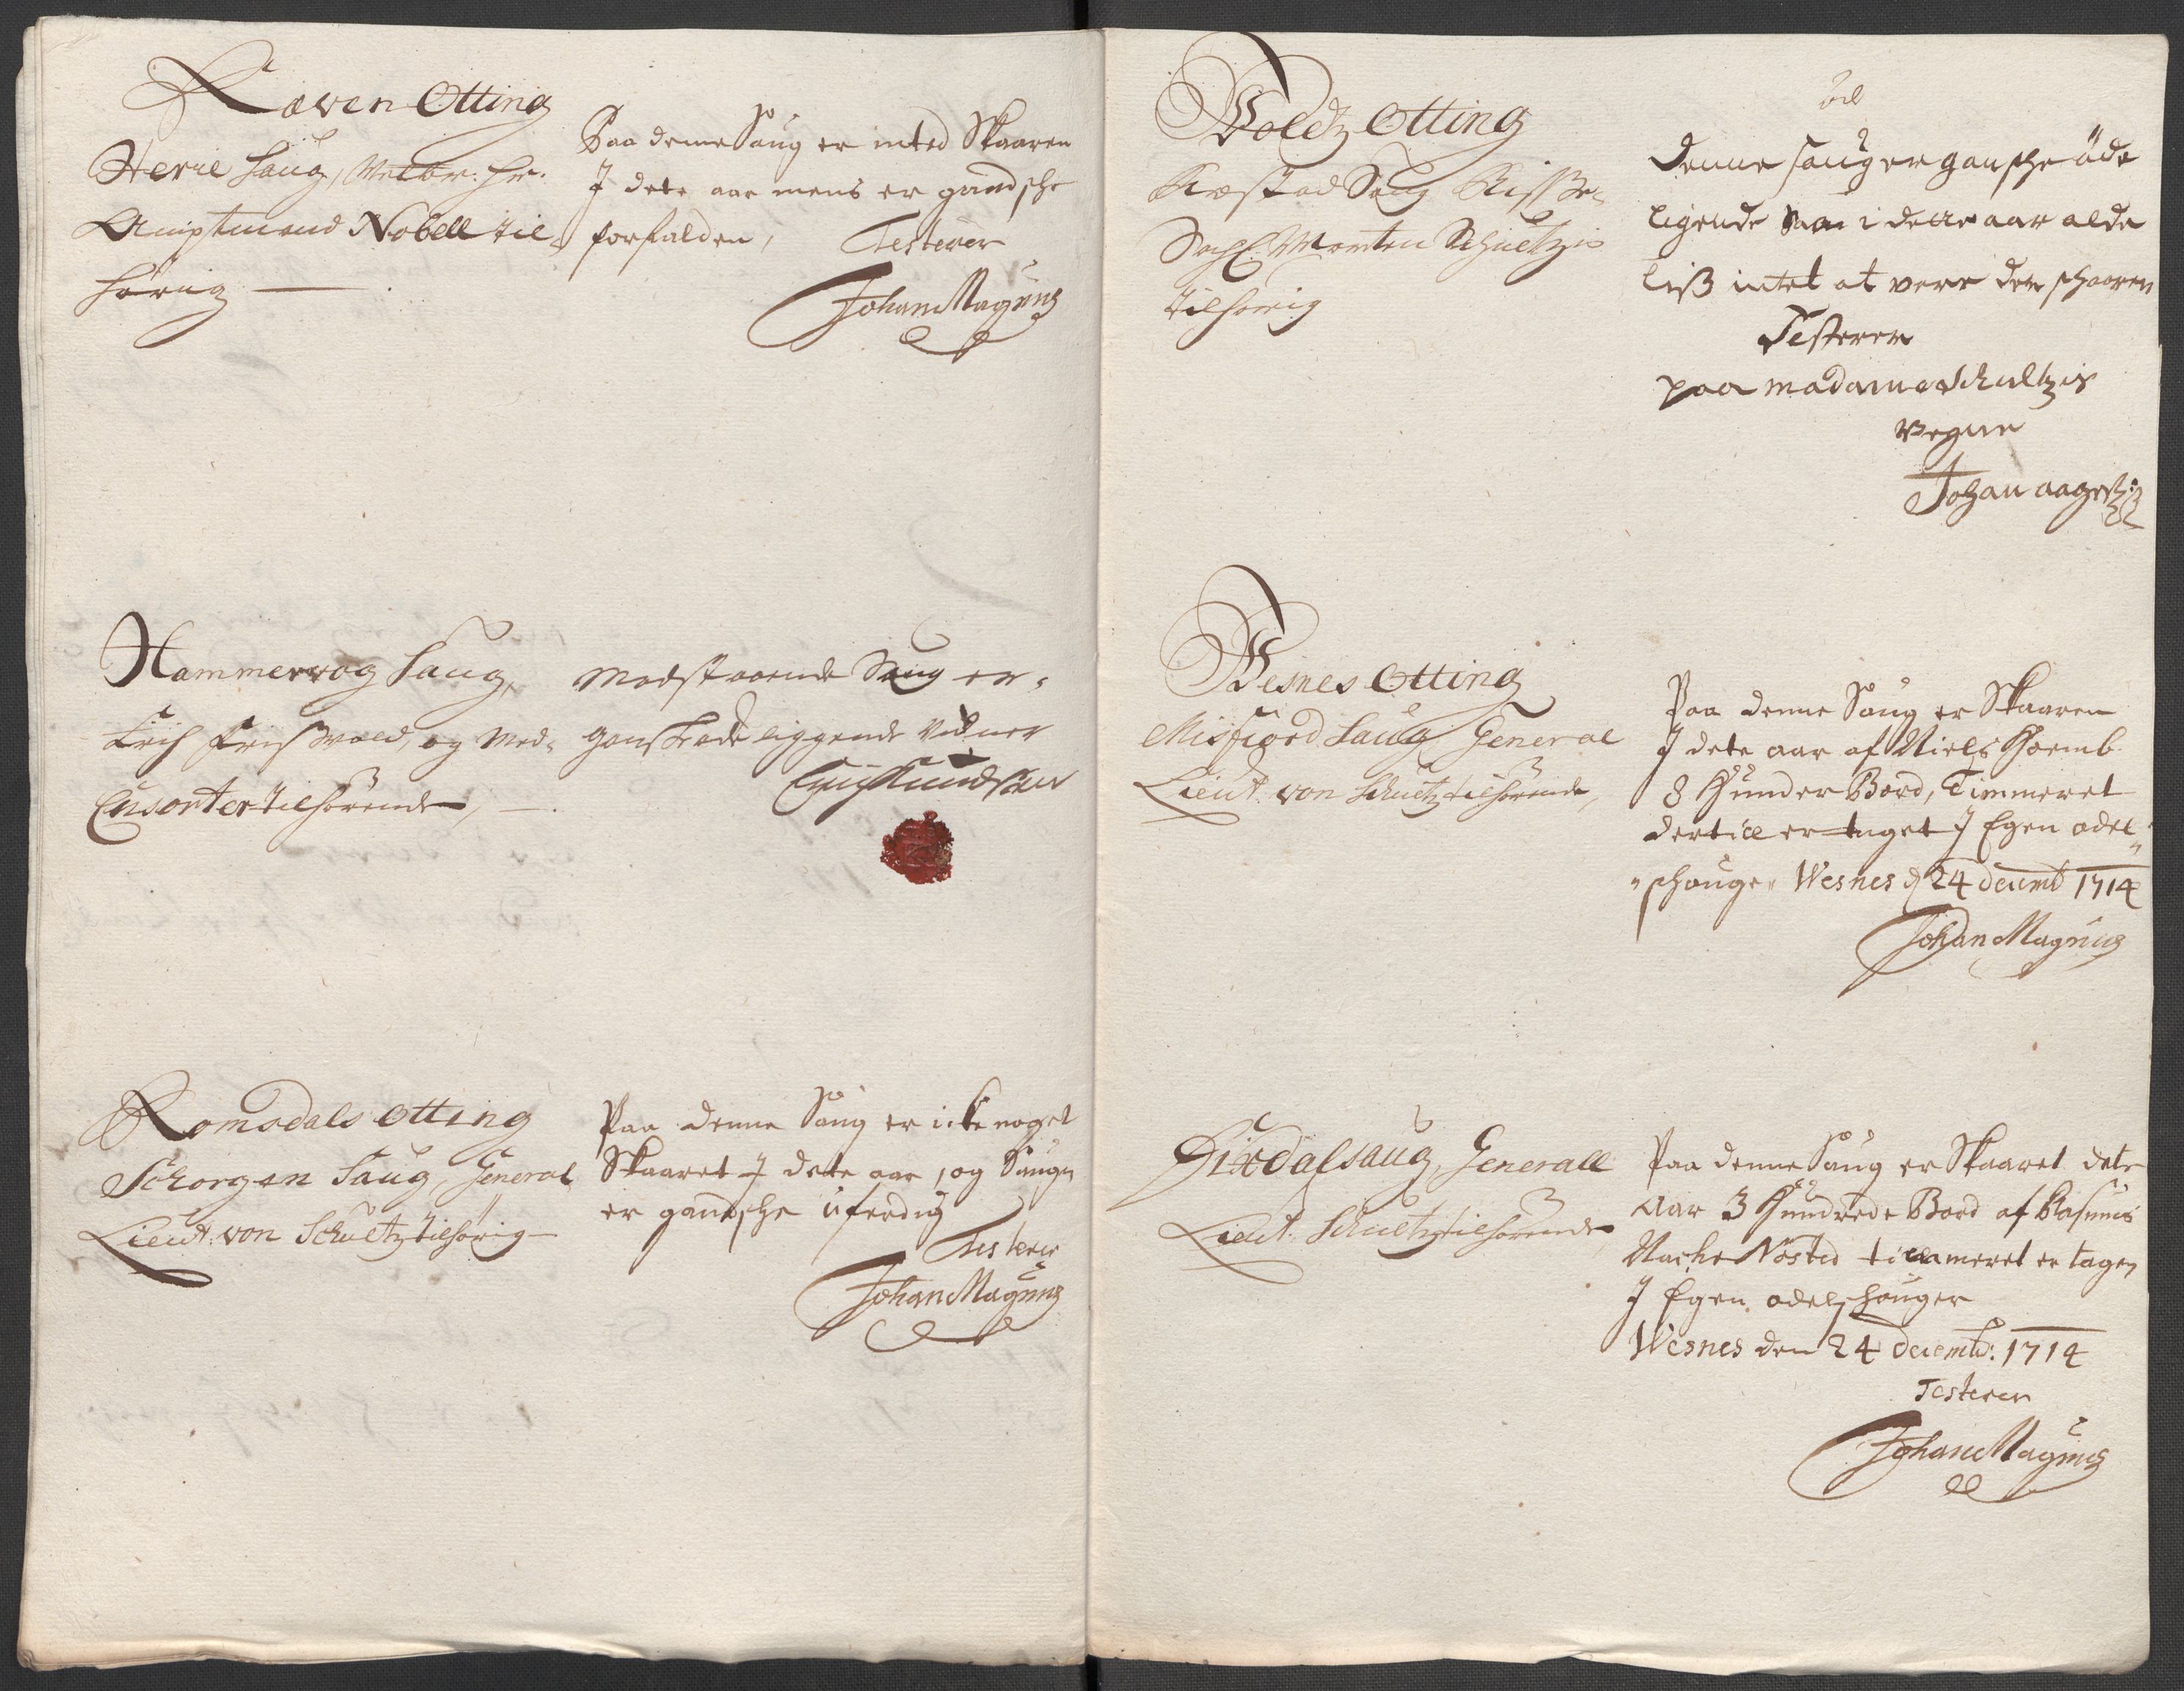 Ræven Otting
Herie Saug, Welbr: Hr.
Amptmand Nobell til
hørig
Paa denne Saug er inted Skaaren
J dete aar mens er gandsche
forfalden,
Testerer
Johan Magnus
Hammervog Saug,
Erich Frisvold, og Med-
Cusorter tilhørende,
Modstaaende Saug er
ganske øde liggende Vidner
Knudsen
Romsdals Otting
Schorgen Saug, General
Lieut: von Schultz tilhørig
Paa denne Saug er icke noget
Skaaret J dete aar, og Saugen
er gandsche uferdig
Testerer
Johan Magnus
Woldtz Otting
Saug
Sahl. Morten Schultzis
tilhørig
Denne saug er gansche øde
ligende saa i dette aar alde
liß intet at vere der schaaren
Testerer
paa madame Schultzis
Vegne
Johan
Wesnes Otting
Misfiord Saug General
Lieut. von Schultz tilhørende,
Paa denne Saug er Skaaren
J dete aar af Niels
8 Hunder Bord, Timmeret
dertill er taget J Egen odel
schouge, Wesnes d 24 decemb 1714
Johan Magnus
Dixdal saug, Generall
Lieut. Schultz tilhørende
Paa denne Saug er Skaaret dete
Aar 3 Hundrede Bord af Rasmus
Nøsted timmeret er tagen
J Egen odel schouger
Wesnes den 24 decemb: 1714
Testerer
Johan Magnus